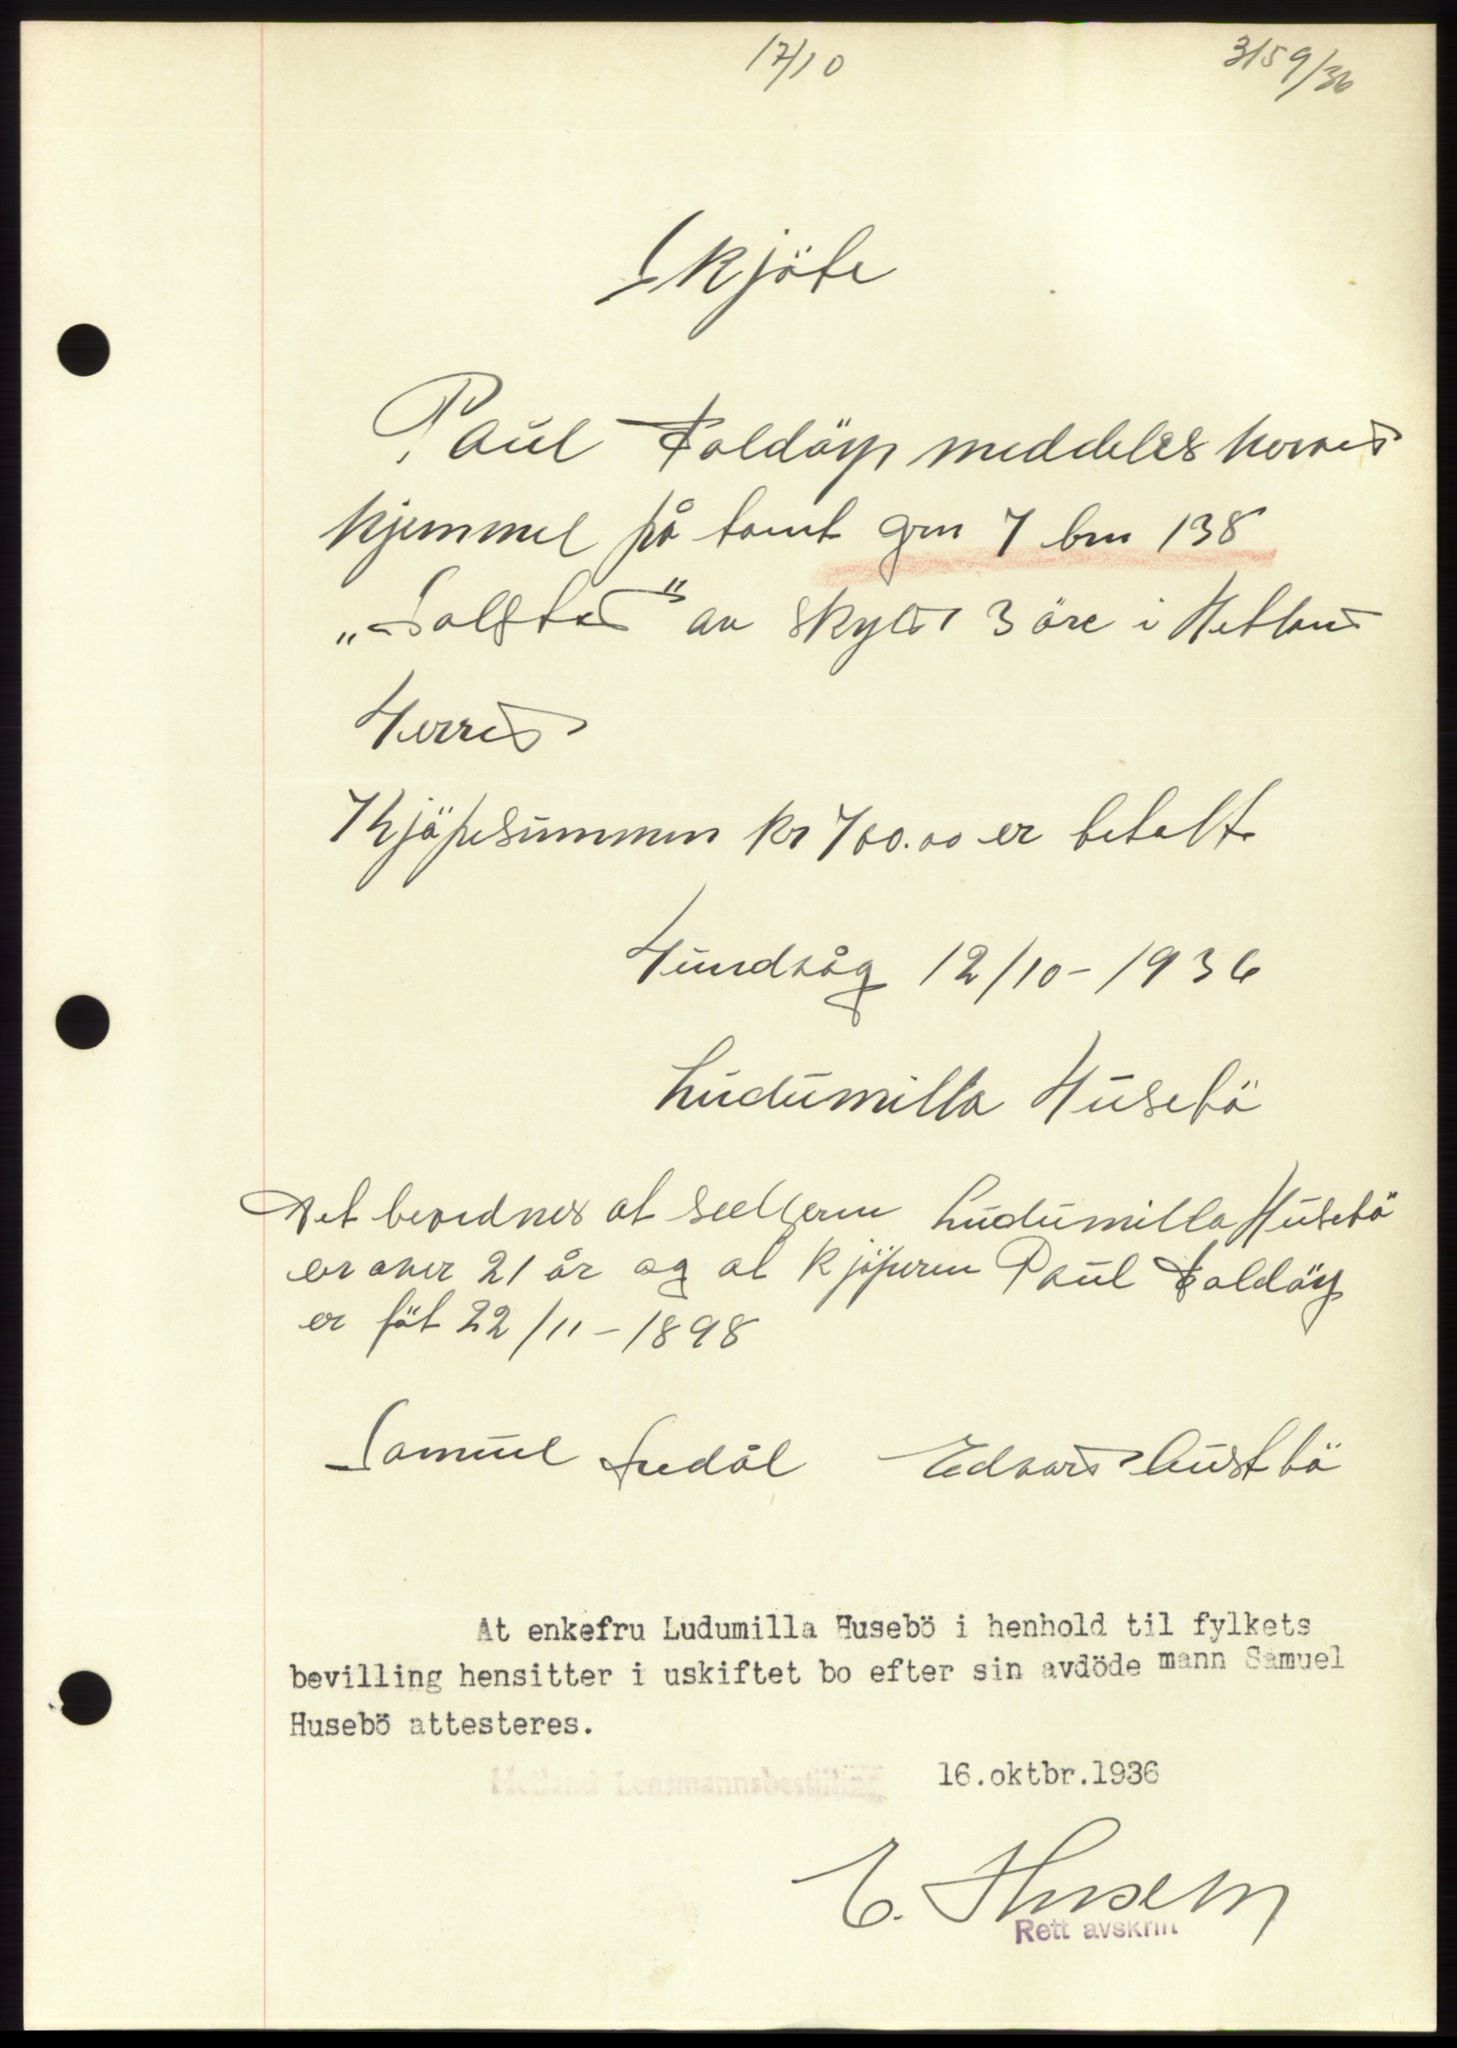 17/10
3159/36
Skjöte
Paul Foldöy meddeles herved
hjemmel på tomt gnr 7 bnr 138
„Solstad" av skyld 3 öre i Hetland
Herred
Kjöpesummen kr 700.00 er betalt
Hundvåg 12/10-1936
Ludumilla Husebö
Det bevidnes at selgeren Ludumilla Husebö
er over 21 år og at kjöperen Paul Foldöy
er föt 22/11-1898
Samuel Edvard Austbö
At enkefru Ludumilla Husebö i henhold til fylkets
bevilling hensitter i uskiftet bo efter sin avdöde mann Samuel
Husebö attesteres.
Hetland Lensmannsbestilling 16.oktbr.1936
E. Thusem
Rett avskrift